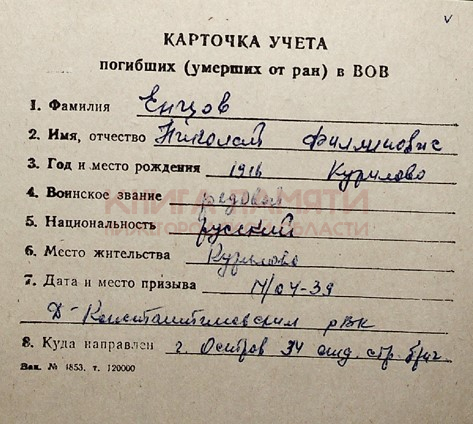 КАРТОЧКА УЧЕТА
погибших (умерших от ран) в ВОВ
1. Фамилия Енцов
2. Имя, отчество Николай Филиппович
3. Год и место рождения 1916 Курилово
4. Воинское звание рядовой
5. Национальность русский
6. Место жительства Курилово
7. Дата и место призыва 17/04-39
Д-Константиновским рВК
8. Куда направлен г. Остров 34 отд. стр. бриг
Зак. № 4853. т. 120000
КНИГА ПАМЯТИ
НИЖЕГОРОДСКОЙ ОБЛАСТИ